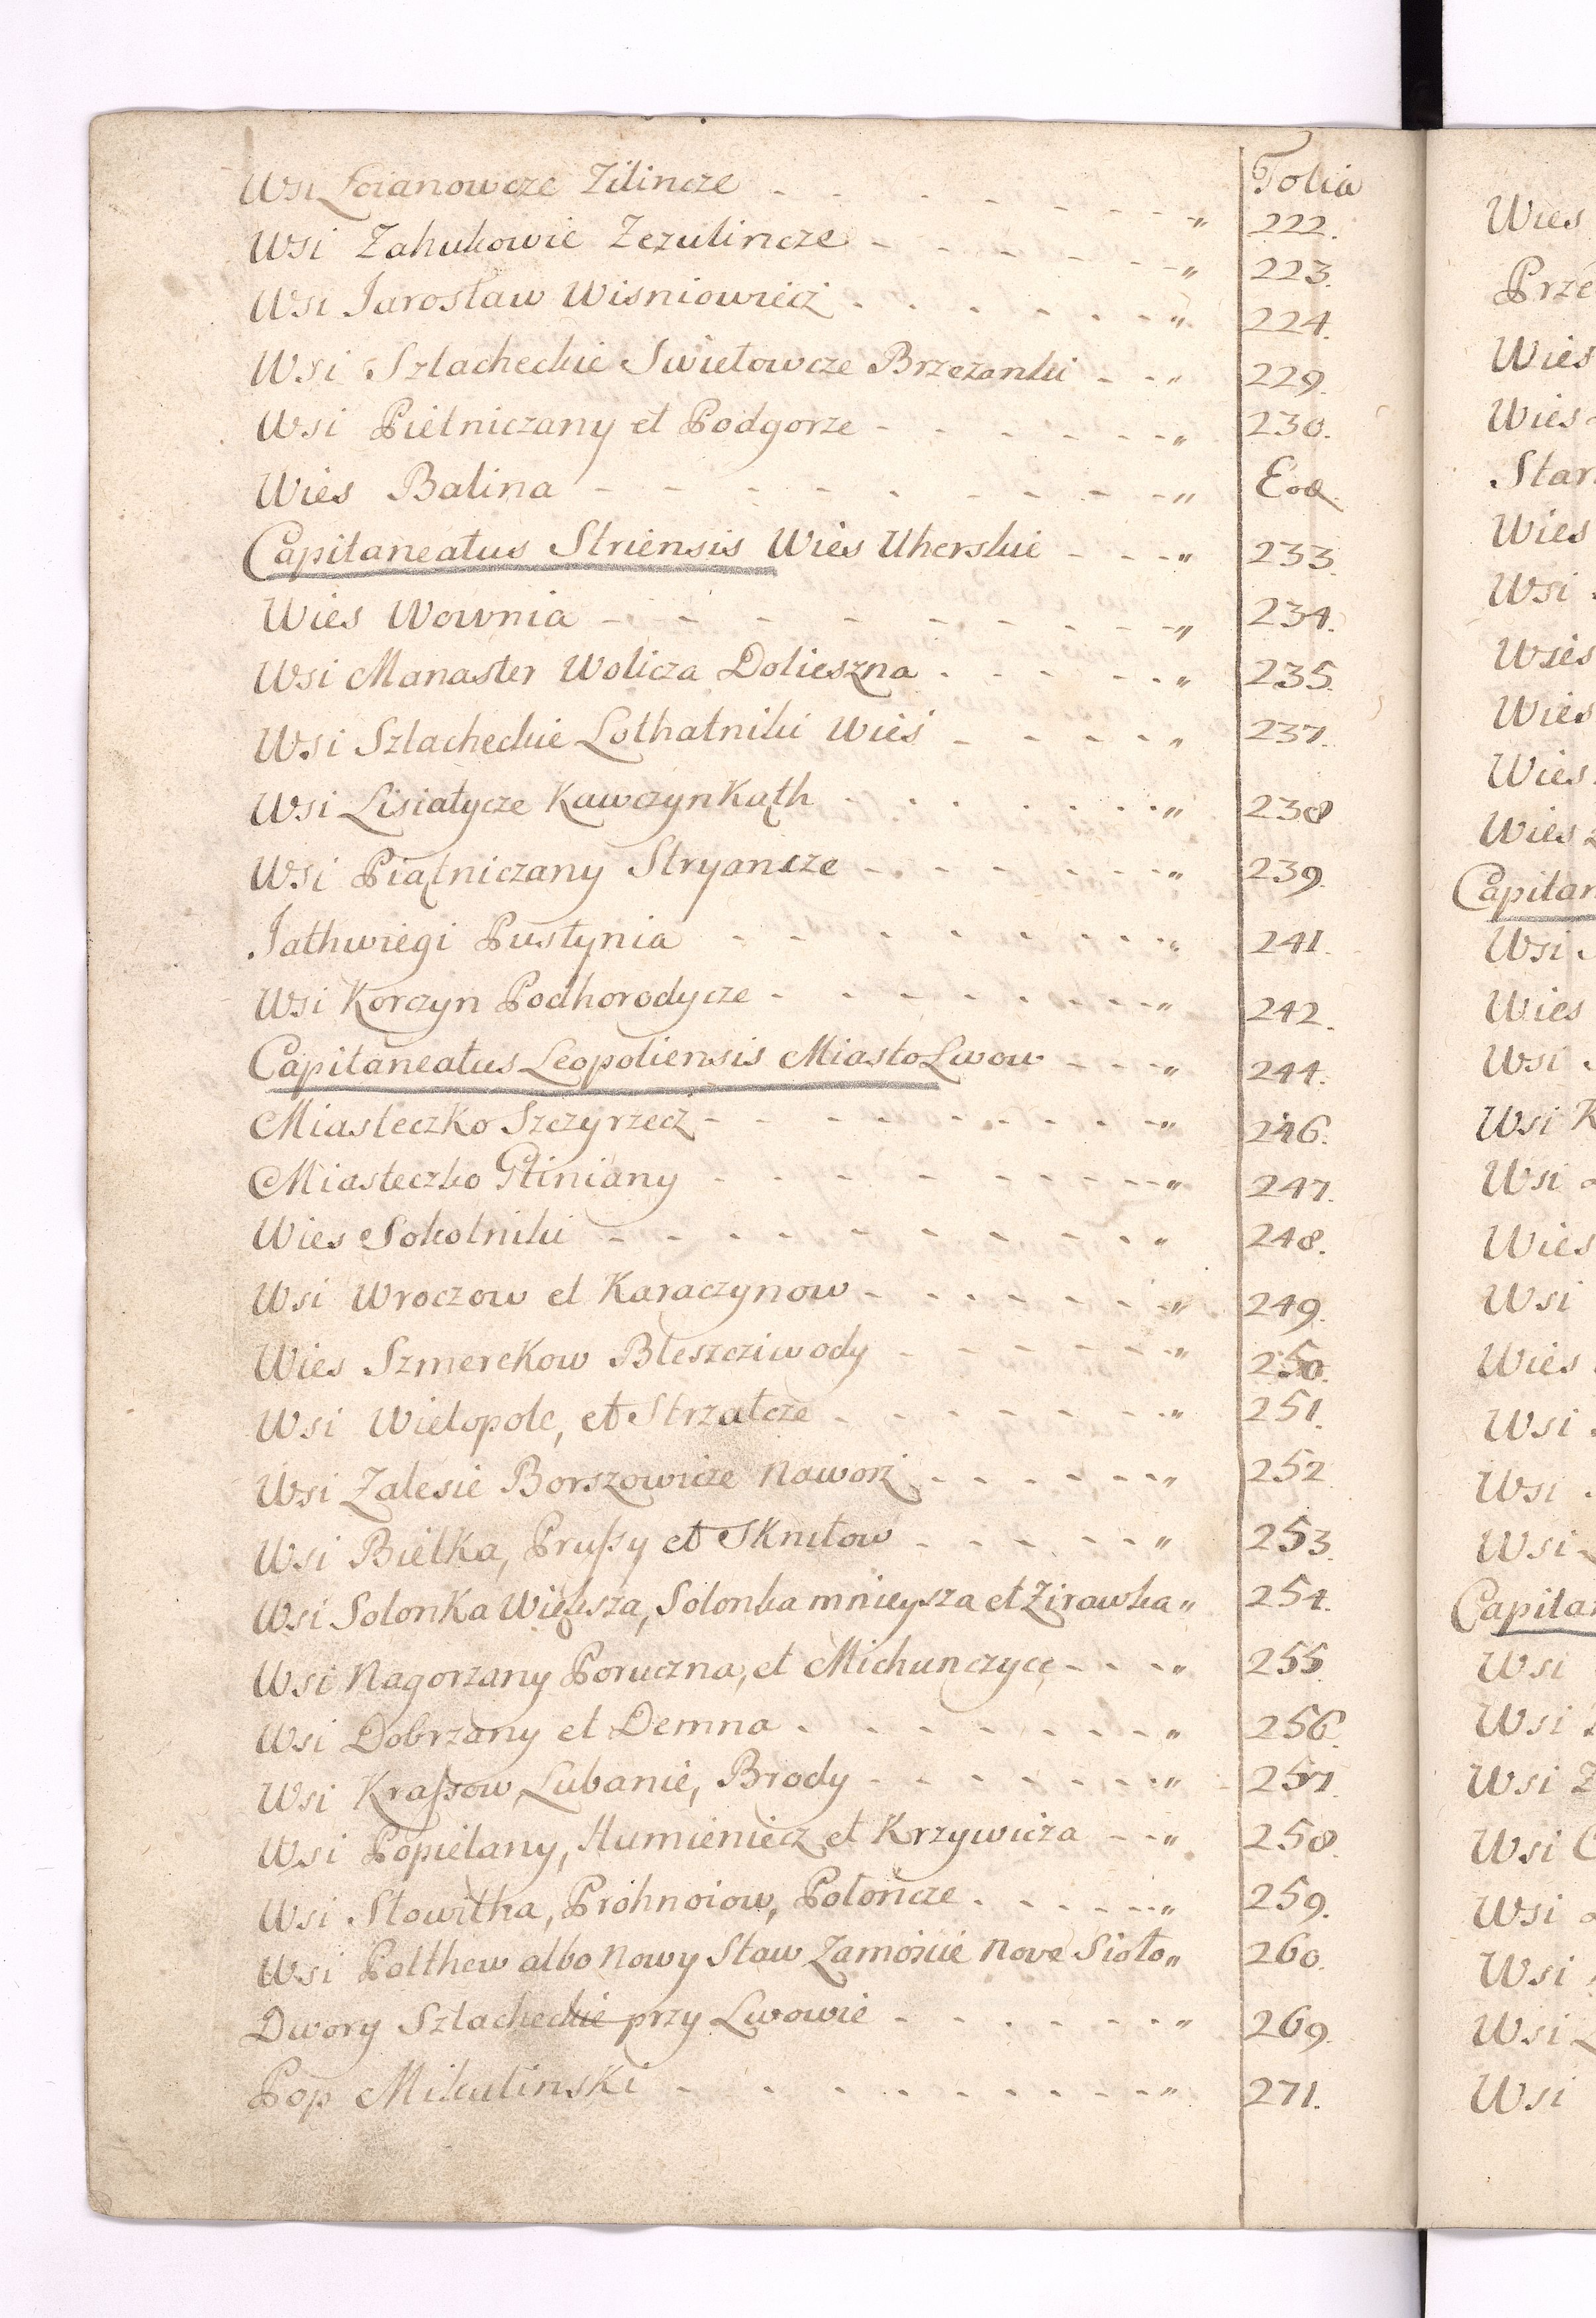 Folia
Wsi Łoianowcze Zilincze - - - - - - - - „ 222.
Wsi Zahukowie Zezulincze - - - - - - - „ 223.
Wsi Jarosław Wisniowiecz - - - - - - - „ 224.
Wsi Szlacheckie Swietowcze Brzezanki - - „ 229.
Wsi Pietniczany et Podgorze - - - - - - „ 230.
Wies Balina - - - - - - - - - - „ Eod.
Capitaneatus Striensis Wies Uherskie - - - „ 233.
Wies Wownia - - - - - - - - - „ 234.
Wsi Manaster Wolicza Dolieszna - - - - - „ 235.
Wsi Szlacheckie Lothatniki Wies - - - - „ 237.
Wsi Lisiatycze Kawczyn Kąth - - - - - - - „ 238
Wsi Piątniczany Stryancze - - - - - - - „ 239.
Jathwiegi Pustynia - - - - - - - - - „ 241.
Wsi Korczyn Podhorodycze - - - - - - - - „ 242.
Capitaneatus Leopoliensis Miasto Lwow - - - „ 244.
Miasteczko Szczyrzecz - - - - - - - - - „ 246.
Miasteczko Gliniany - - - - - - - - - „ 247.
Wies Sokolniki - - - - - - - - - - „ 248.
Wsi Wroczow et Karaczynow - - - - - - - „ 249.
Wies Szmerekow Bleszcziwody - - - - - - „ 250.
Wsi Wielopole, et Strzałcze - - - - - - - „ 251.
Wsi Zalesie Borszowicze Naworz - - - - - - „ 252
Wsi Biełka, Prussy et Skniłow - - - - - „ 253.
Wsi Solonka Większa, Solonka mnieysza et Zirawka „ 254.
Wsi Nagorzany Poruczna, et Michunczyce - - - „ 255.
Wsi Dobrzany et Demna - - - - - - - - „ 256.
Wsi Krassow, Lubanie, Brody - - - - - - - „ 257.
Wsi Popielany, Humieniecz et Krzywicza - - „ 258.
Wsi Słowitha, Prohnoiow, Połoncze - - - - - „ 259.
Wsi Połthew albo Nowy Staw Zamoście Nove Sioło „ 260.
Dwory Szlacheckie przy Lwowie - - - - - - „ 269.
Pop Mikulinski - - - - - - - - - „ 271.